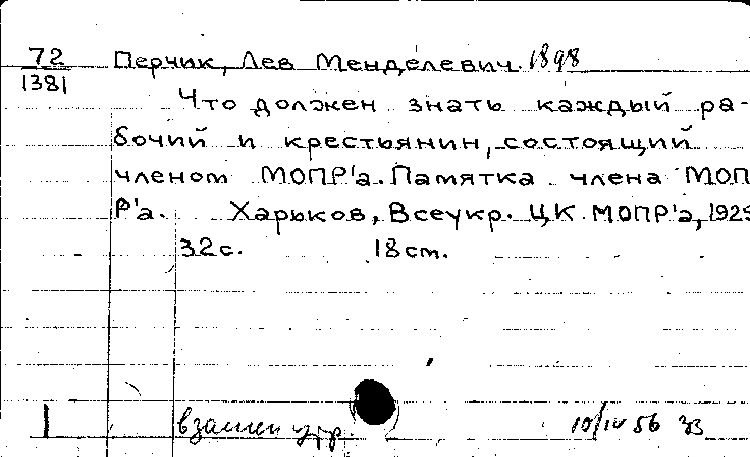 72 Перчик, Лев Менделевич. 1898
1381
Что должен знать каждый ра-
бочий и крестьянин, состоящий
членом МОПР'а. Памятка члена МОП
Р'а. Харьков, Всеукр. ЦК МОПР'а, 1925
32с. 18 cm.
взамен утр. 10/IV 56